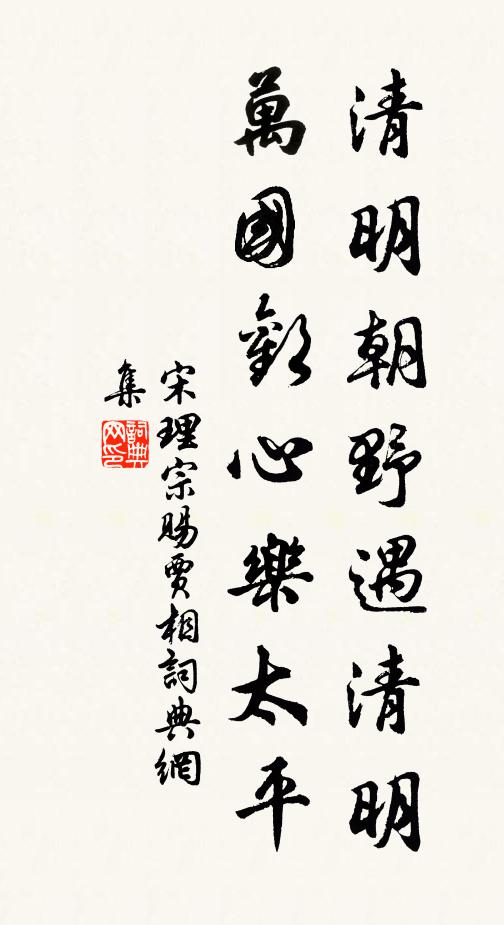 清明朝野遇清明
萬國歡心樂太平
宋理宗賜賈相詞典網
集
詞典
网印